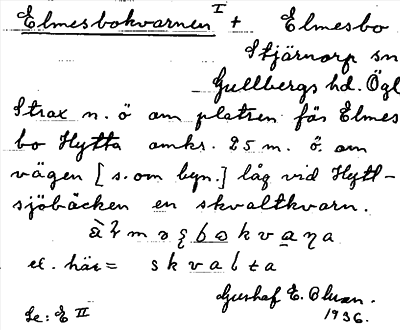 Elmesbokvarnen I + Elmesbo
Stjärnorp sn
Gullbergs hd. Ögl
Strax n. ö om platsen för Elmes
bo Hytta omkr. 25 m. ö. om
vägen [s. om byn.] låg vid Hytt-
sjöbäcken en skvaltkvarn.
el. här= skvalta
Gustaf E. Olsson.
1936.
Se: E II